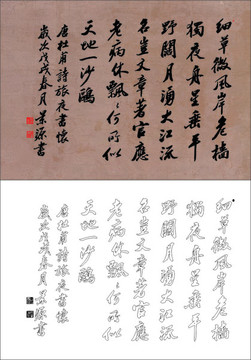 細草微風岸危檣
獨夜舟星垂平
野闊月湧大江流
名豈文章著官應
老病休飄〻何所似
天地一沙鷗
唐杜甫詩旅夜書懷
歲次戊戌春月景源書
細草微風岸危檣
獨夜舟星垂平
野闊月湧大江流
名豈文章著官應
老病休飄〻何所似
天地一沙鷗
唐杜甫詩旅夜書懷
歲次戊戌春月景源書